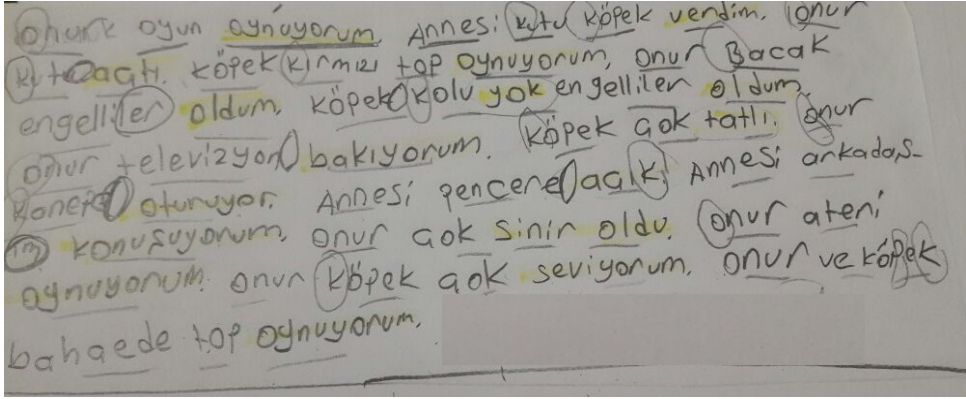 Onurk oyun oynuyorum. Annesi kutu köpek verdim. Onur
kutoactı. köpek kırmızı top oynuyorum, onur Bacak
engelliler oldum. köpek kolu yok engelliler oldum.
onur televizyon bakıyorum. köpek aok tatlı. onur
oturuyor. Annesi pencere aaık, Annesi arkadaş-
ım konuşuyorum. onur aok sinir oldu. onur ateni
oynuyorum. onur köpek aok seviyorum. onur ve köpek
bahaede top oynuyorum.